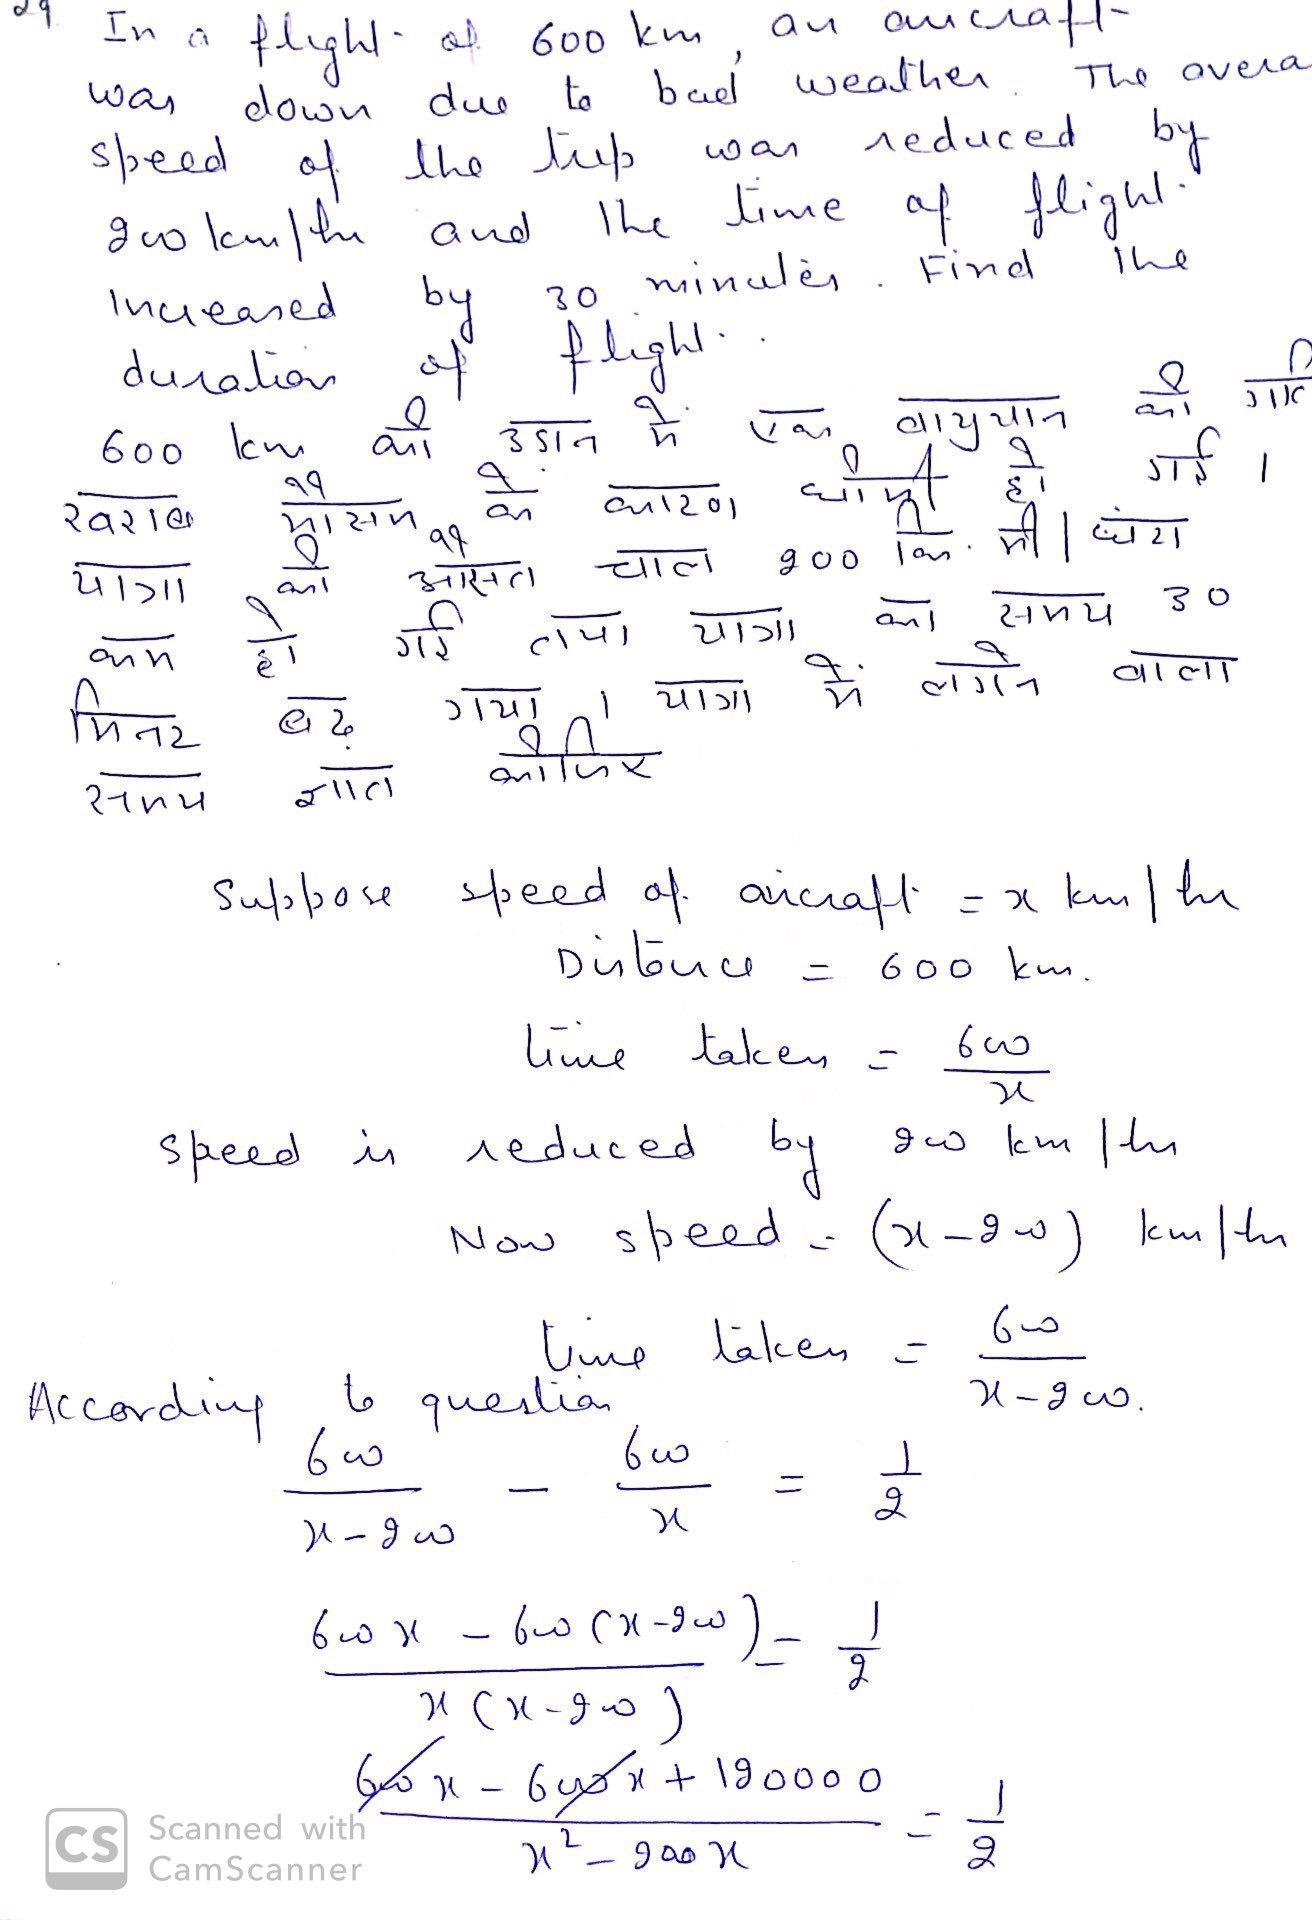 29. In a flight of 600 km, an aircraft
was down due to bad weather. The avera
speed of the trip was reduced by
200 km/hr and the time of flight
increased by 30 minutes. Find the
duration of flight.
600 km की उडान में एक वायुयान की गति
खराब मौसम के कारण धीमी हो गई ।
यात्रा की औसत चाल 200 कि. मी/घंटा
कम हो गई तथा यात्रा का समय 30
मिनट बढ़ गया । यात्रा में लगने वाला
समय ज्ञात कीजिए
Suppose speed of aircraft = x km/hr
Distance = 600 km.
time taken = 600/x
speed is reduced by 200 km/hr
Now speed = (x-200) km/hr
time taken = 600/(x-200).
According to question
600/(x-200) - 600/x = 1/2
(600x - 600(x-200))/(x(x-200)) = 1/2
(600x - 600x + 120000)/(x² - 200x) = 1/2
CS Scanned with
CamScanner